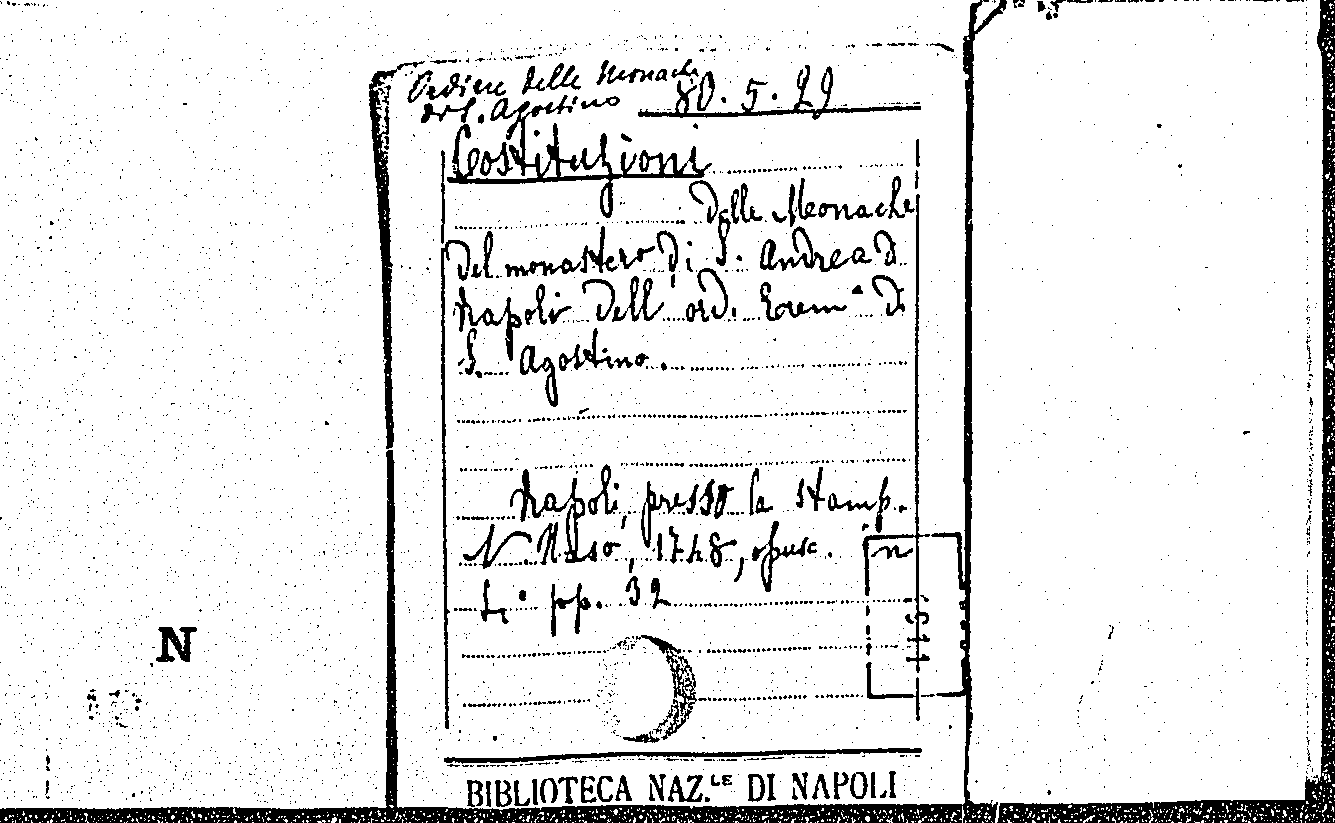 Ordine delle Monache
di S. Agostino
80. 5. 29
Costituzioni
delle Monache
del monastero di S. Andrea di
Napoli dell' ord. Erem. di
S. Agostino.
Napoli, presso la stamp.
N. Naso, 1748, opusc. in
4° pp. 32
N
BIBLIOTECA NAZ.LE DI NAPOLI